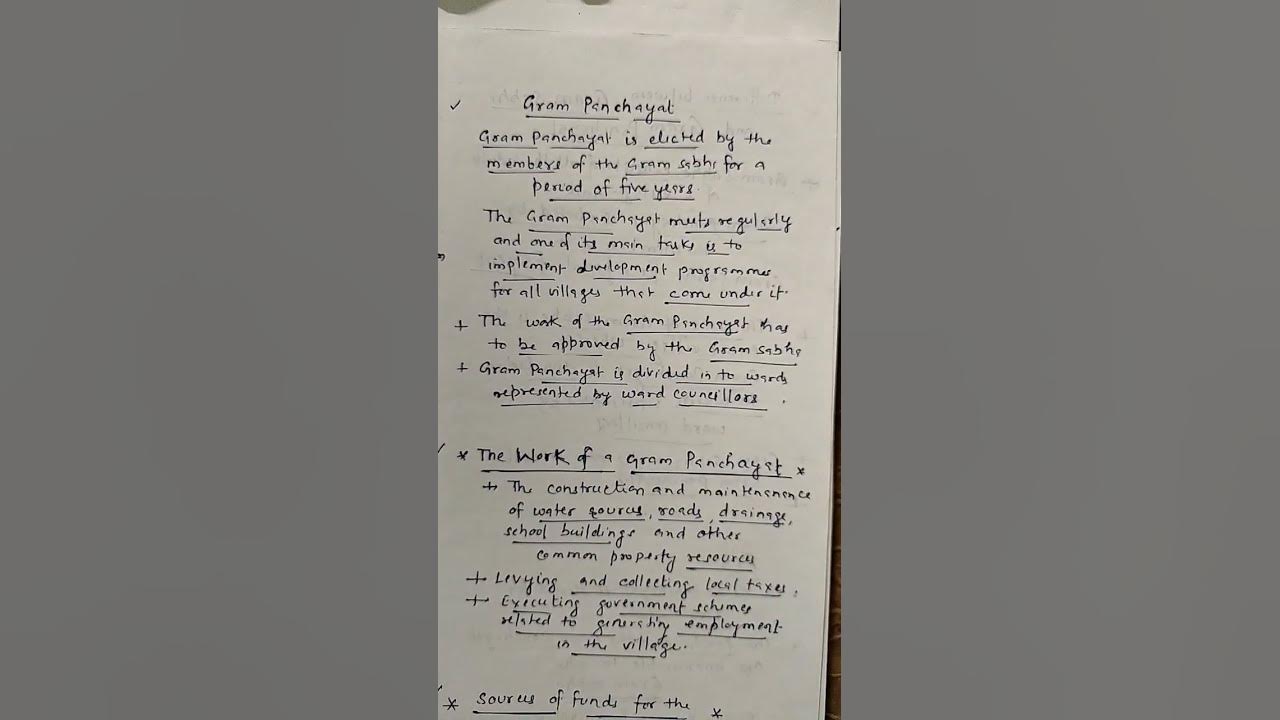 Gram Panchayat
Gram Panchayat is elected by the
members of the Gram sabha for a
period of five years.
The Gram Panchayat meets regularly
and one of its main tasks is to
implement development programmes
for all villages that come under it.
+ The work of the Gram Panchayat has
to be approved by the Gram sabha
+ Gram Panchayat is divided in to wards
represented by ward councillors .
* The Work of a Gram Panchayat *
+ The construction and maintenanence
of water sources, roads, drainage,
school buildings and other
common property resources
+ Levying and collecting local taxes.
+ Executing government schemes
related to generating employment
in the village.
* Sources of funds for the *